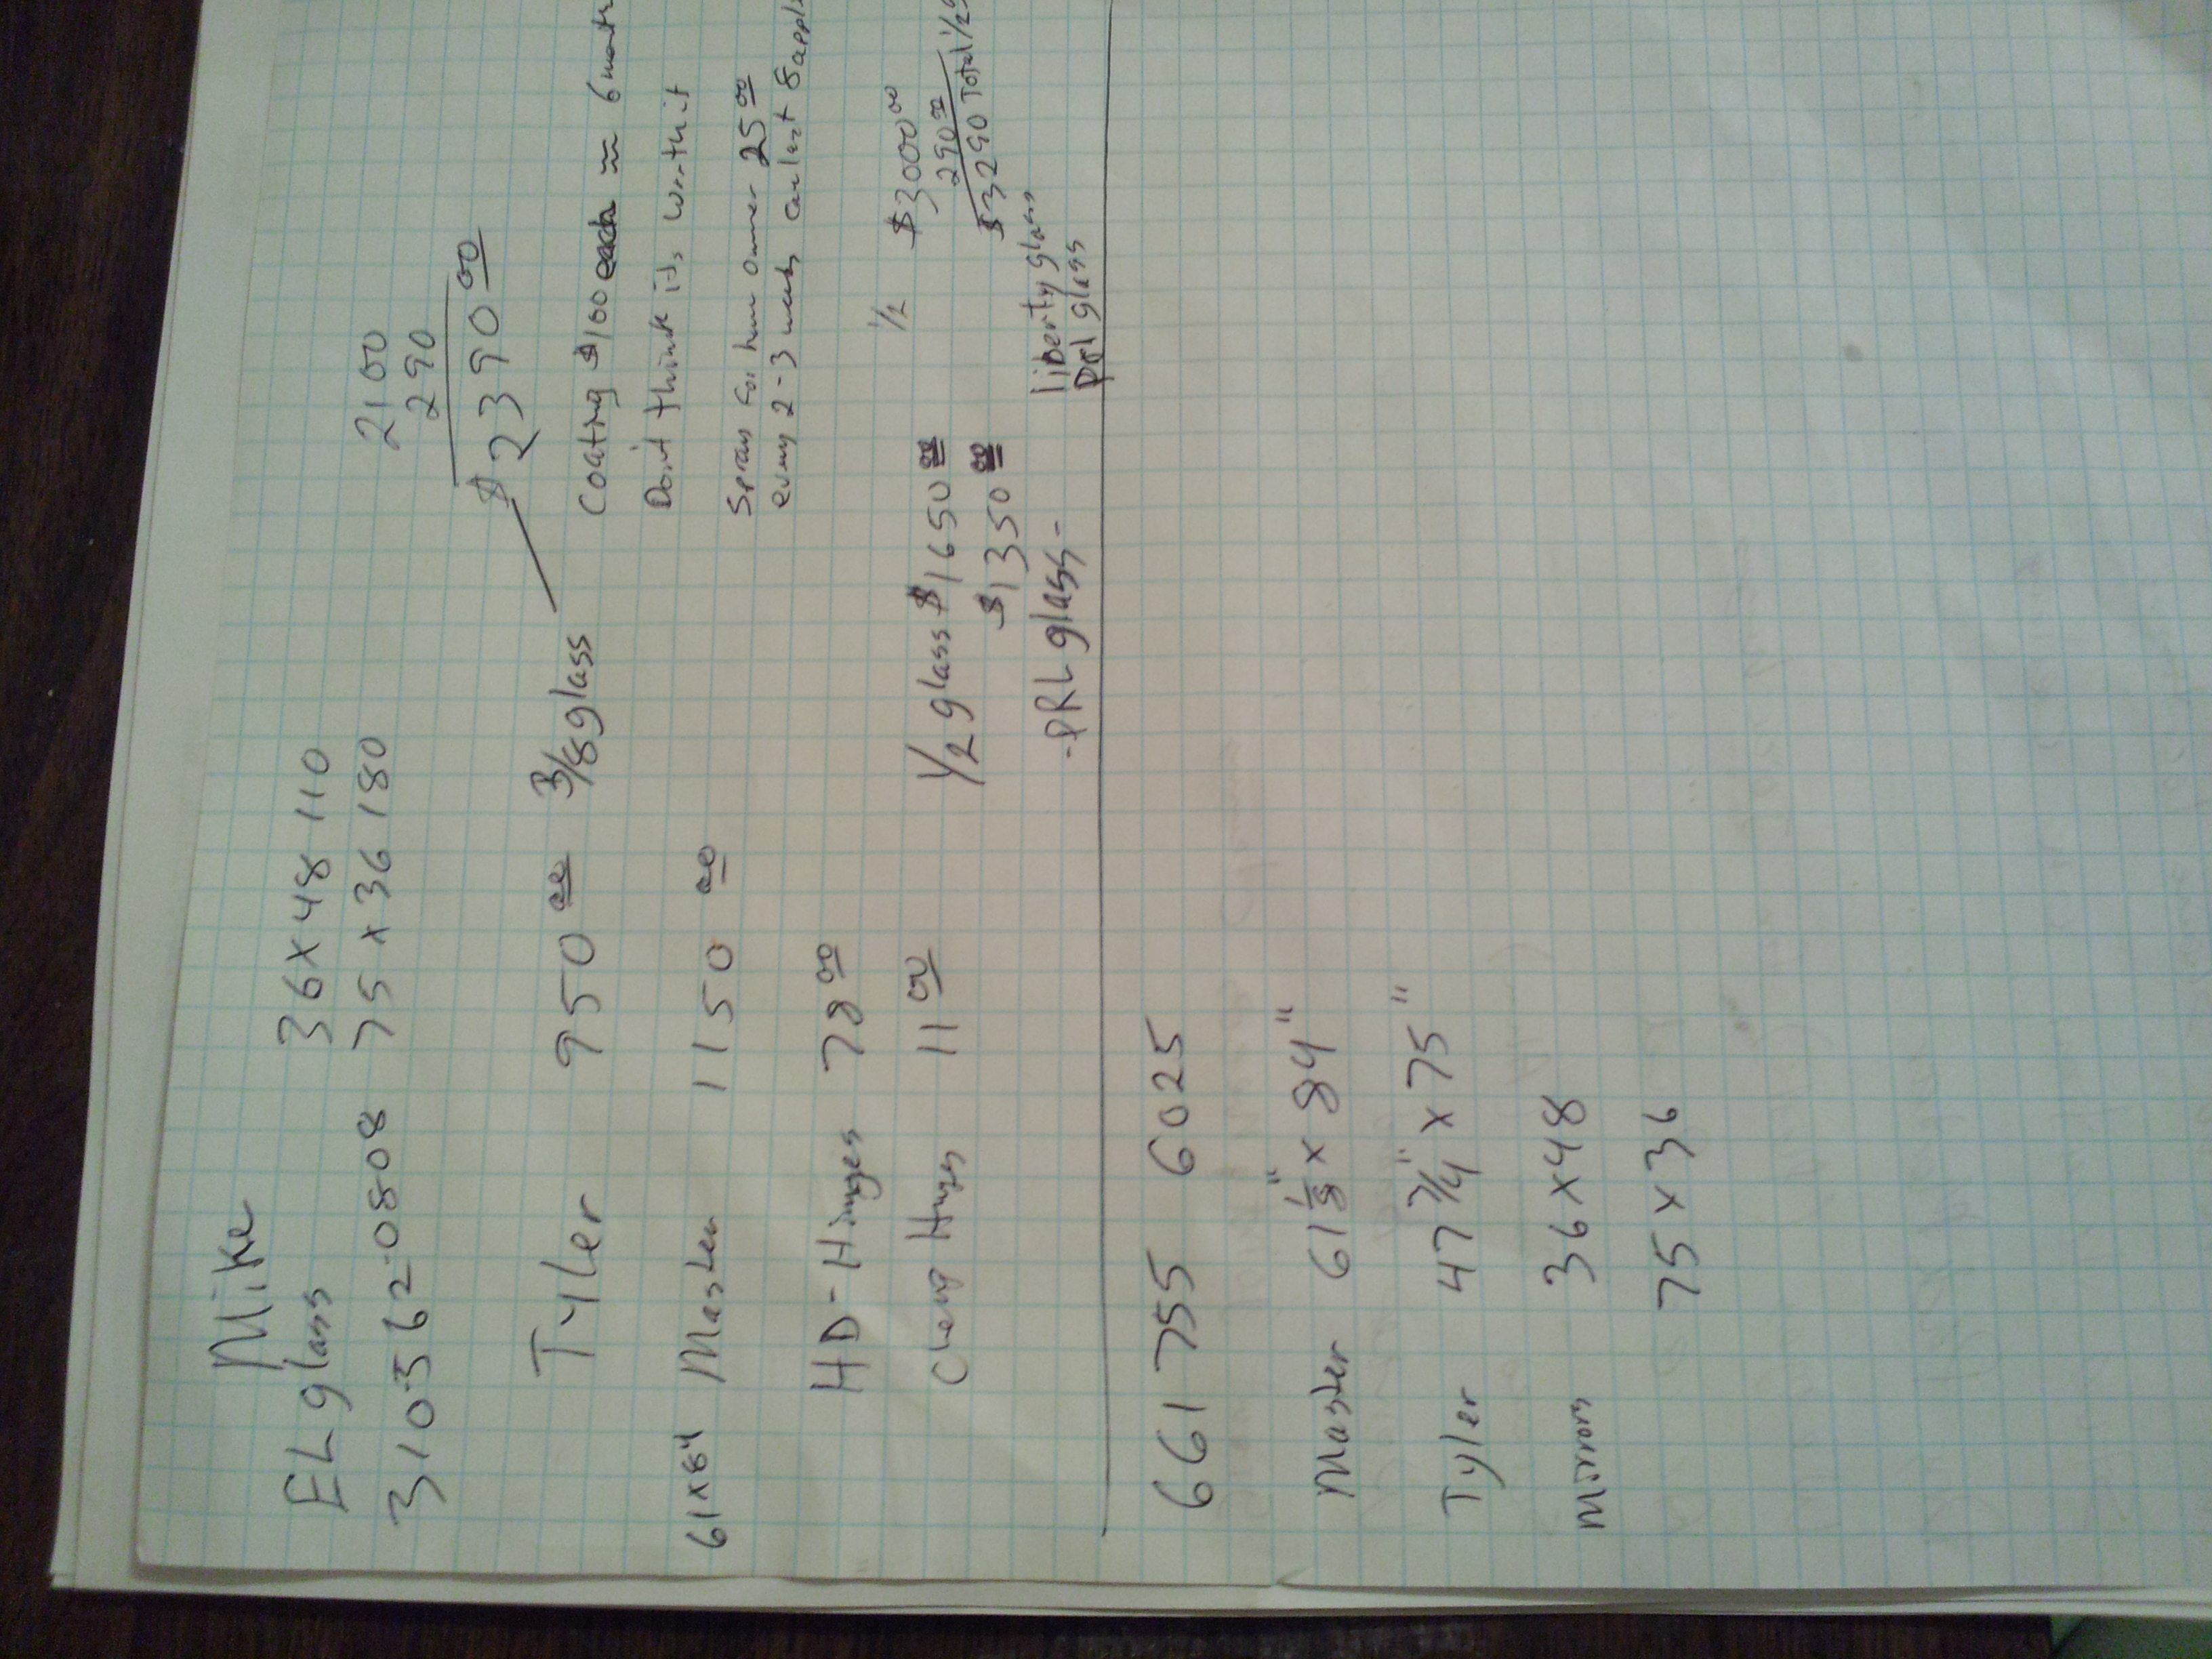 Mike
EL glass 36 x 48 110
310-562-0808 75 x 36 180
2100
290
$2390 00
Tyler 950 00 3/8 glass
Coating $100 each in 6 month
61x84 Master 1150 00
Don't think its worth it
HD-Hinges 78 00
Spray for home owner 25 00
every 2-3 weeks can last 8 appl
Cheap Hinges 11 00
1/2 glass $1650 00
$1350 00
-PRL glass-
1/2 $3000 00
290 00
$3290 Total 1/2
liberty glass
Prl glass
661 755 6025
Master 61 1/8" x 84"
Tyler 47 3/4" x 75"
Mirrors 36 x 48
75 x 36